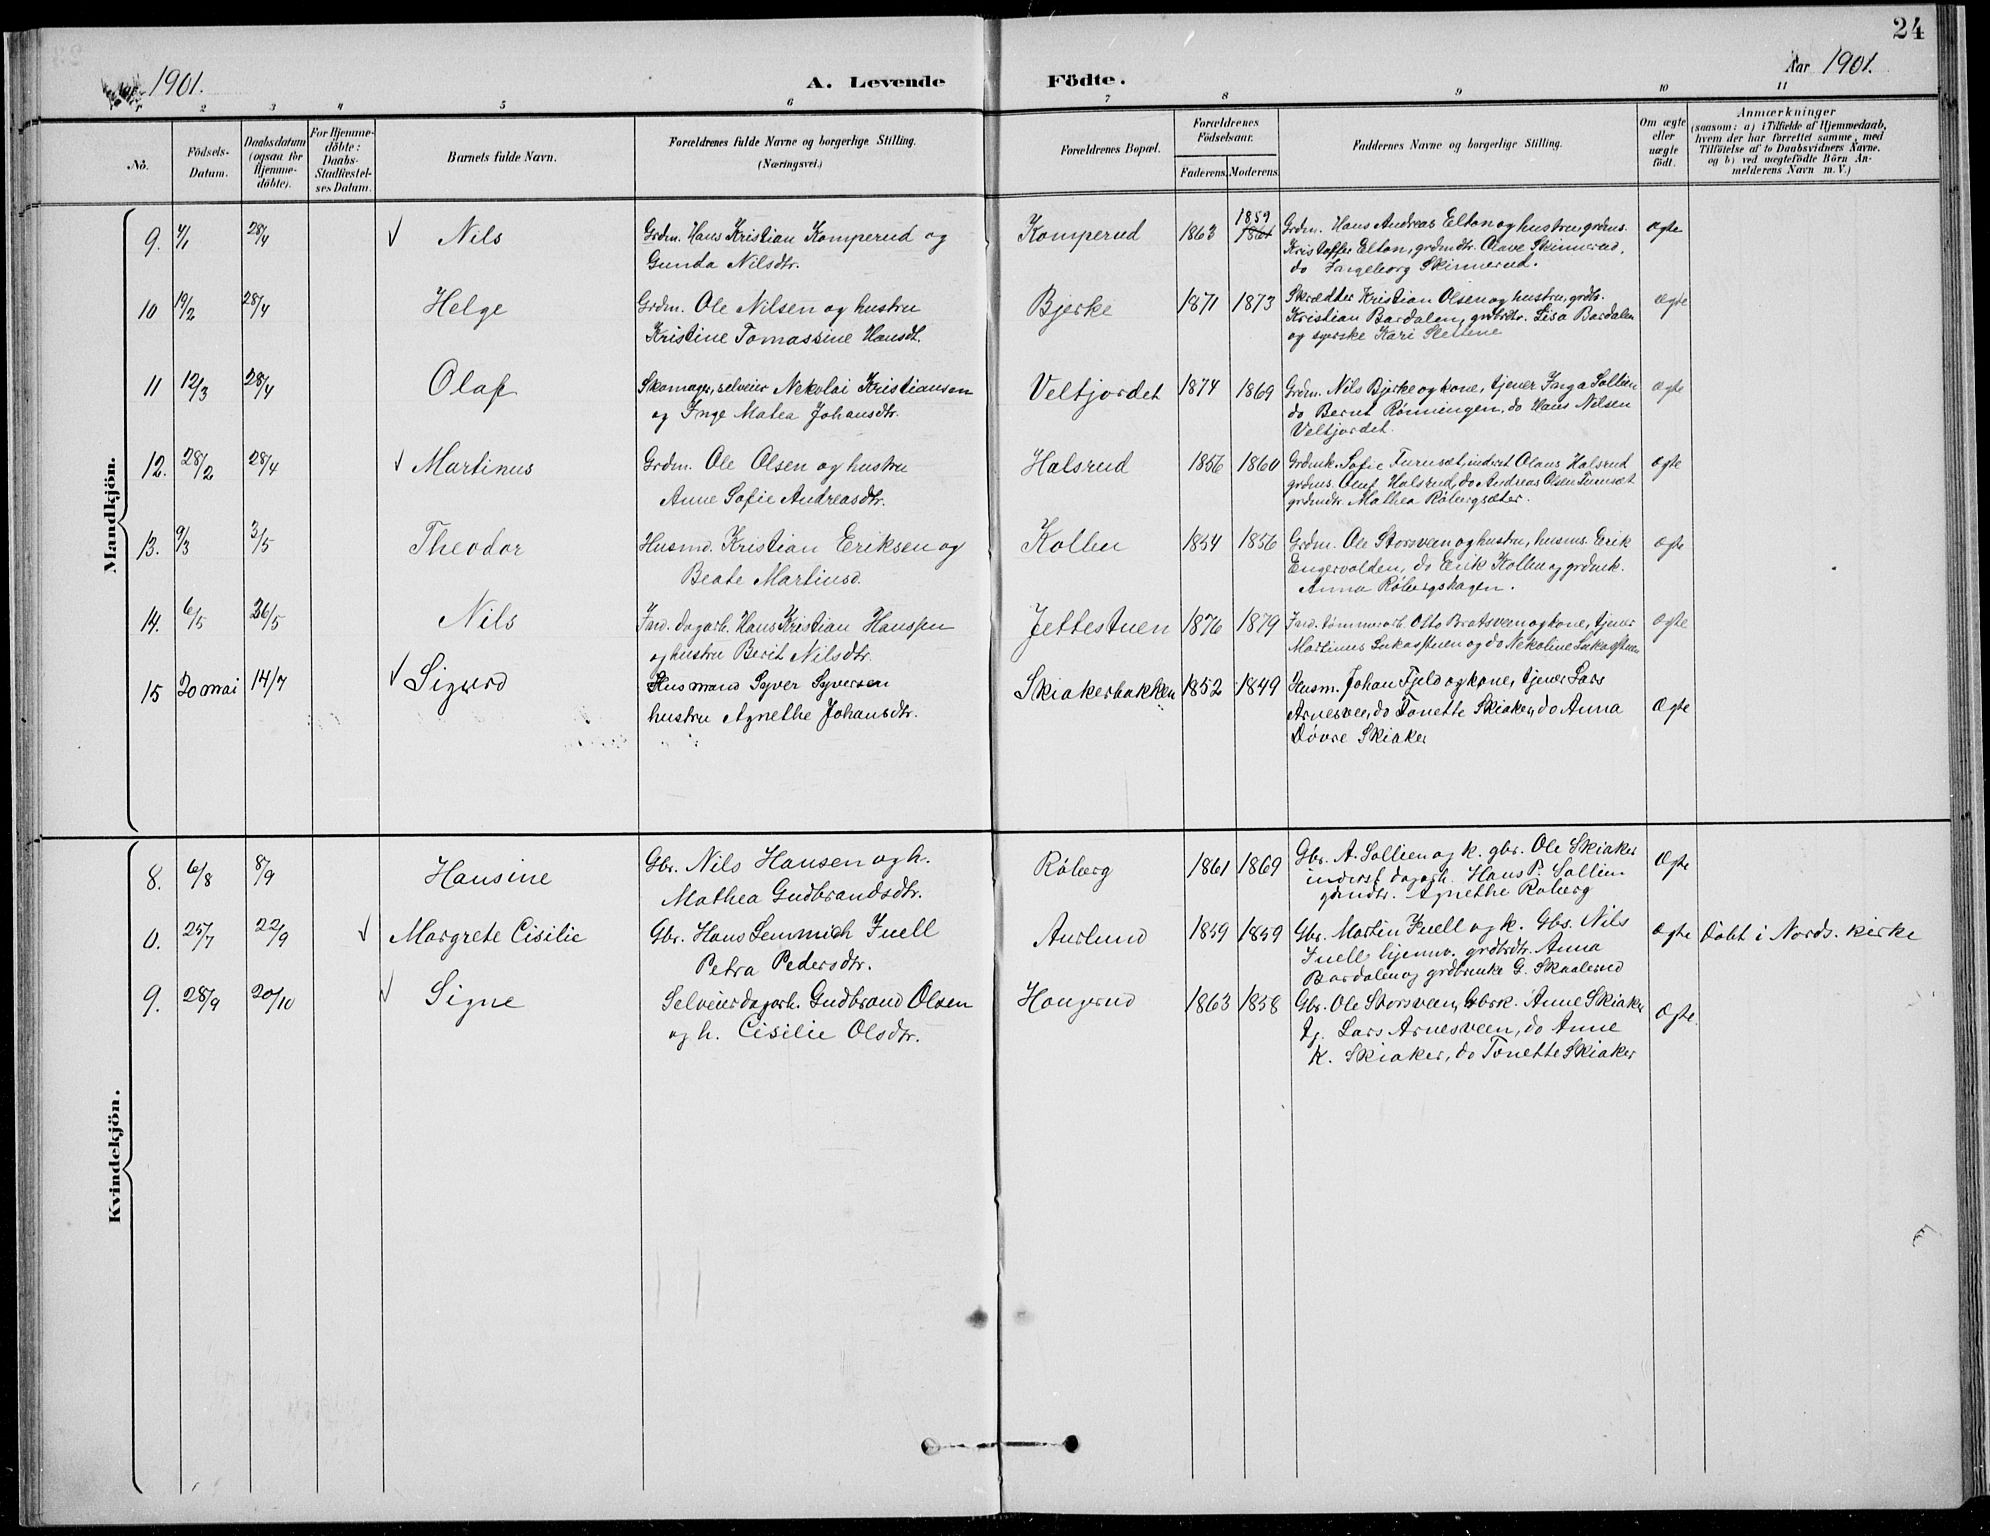 24
1901.
A. Levende Födte.
Aar 1901.
1 2 3 4 5 6 7 8 9 10 11
No.
Födsels-
Datum.
Daabsdatum
(ogsaa for
Hjemme-
döbte).
For Hjemme-
döbte:
Daabs-
Stadfæstel-
ses Datum.
Barnets fulde Navn.
Forældrenes fulde Navne og borgerlige Stilling.
(Næringsvei.)
Forældrenes Bopæl.
Forældrenes
Födselsaar.
Faderens. Moderens.
Faddernes Navne og borgerlige Stilling.
Om ægte
eller
uægte
födt.
Anmærkninger
(saasom: a) i Tilfælde af Hjemmedaab,
hvem der har forrettet samme, med
Tilföielse af to Daabsvidners Navne.
og b) ved uægtefödte Börn An-
melderens Navn m. V.)
Mandkjön.
9. 4/1 28/4 Nils
Grdm. Hans Kristian Komperud og
Gunda Nilsdtr.
Komperud 1863 1859 1861
Grdm. Hans Andreas Elton og hustru, grdms.
Kristoffer Elton, grdmdtr. Olave Skinnerud,
do Ingeborg Skinnerud.
Ægte
10 19/2 28/4 Helge
Grdm. Ole Nilsen og hustru
Kristine Tomassine Hansdt.
Bjerke 1871 1873
Skrædder Kristian Olsen og hustru, grdbr.
Kristian Bardalen, grdbrdtr. Lisa Bardalen
og syerske Kari Slettene
ægte
11 12/3 28/4 Olaf
Skomager, selveier Nekolai Kristiansen
og Inge Matea Johansdtr.
Veltjordet 1874 1869
Grdm. Nils Bjerke og kone, tjener Inga Sollien
do Bernt Rønningen, do Hans Nilsen
Veltjordet.
ægte
12. 28/2 28/4 Martinus
Grdm. Ole Olsen og hustru
Anne Sofie Andreasdtr.
Halsrud 1856 1860
Grdmk. Sofie Furusæt, inderst Olaus Halsrud
grdms. Oluf Halsrud, do Andreas Olsen Furusæt
grdmdtr. Mathea Røbergsæter.
ægte
13. 9/3 3/5 Theodor
Husmd. Kristian Eriksen og
Beate Martinsd.
Kollen 1854 1856
Grdm. Ole Storsveen og hustru, husms. Erik
Engervolden, do Erik Kollen og grdmk.
Anna Røbergshagen.
ægte
14. 6/5 26/5 Nils
Ind. dagarb. Hans Kristian Hanssen
og hustru Berit Nilsdtr.
Jettestuen 1876 1879
Ind. tømmerarb. Otto Bratsveen og kone, tjener
Martinus Lukasstuen og do Nekoline Lukasstuen
ægte
15 20 mai 14/7 Sigurd
Husmand Syver Syversen
hustru Agnethe Johansdtr.
Skiakerbakken 1852 1849
Husm. Johan Fjeld og kone, tjener Lars
Arnesvee, do Tonette Skiaker, do Anna
Døvre Skiaker
Ægte
Kvindekjön.
8. 6/8 8/9 Hansine
Gbr. Nils Hansen og h.
Mathea Gudbrandsdtr.
Røberg 1861 1869
Gbr. A. Sollien og k. gbr. Ole Skiaker
inderst dagarb. Hans P. Sollien
gdmdtr. Agnethe Røberg
Ægte
0. 25/7 22/9 Margrete Cisilie
Gbr. Hans Lemmich Juell
Petra Pedersdtr.
Aurlund 1859 1859
Gbr. Martin Juell og k. Gbs. Nils
Juell hjemv. grdbrdtr. Anna
Bardalen og grdbrenke G. Skaalerud
Ægte Døbt i Nords. kirke
9. 28/9 20/10 Signe
Selveierdagarb. Gudbrand Olsen
og h. Cisilie Olsdtr.
Haugerud 1863 1858
Gbr. Ole Storsveen, Gbrk. Anne Skiaker
Tj. Lars Arnesveen, do Anne
K. Skiaker, do Tonette Skiaker
Ægte.